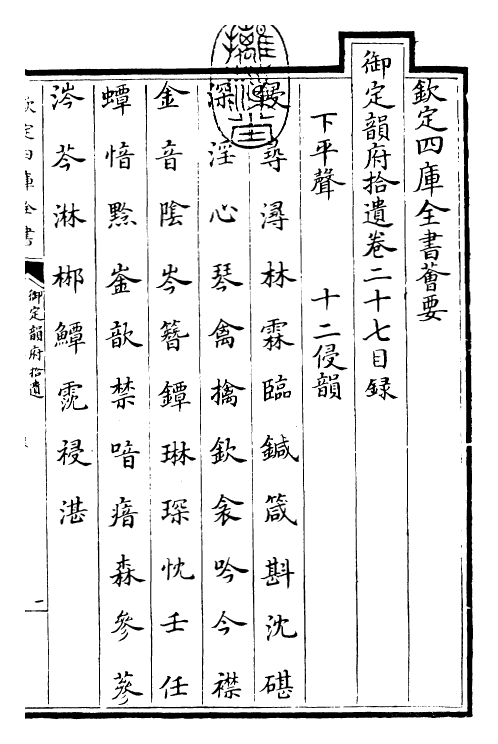 欽定四庫全書薈要
御定韻府拾遺卷二十七目録
下平聲 十二侵韻
尋潯林霖臨鍼箴斟沈碪
深淫心琴禽擒欽衾吟今襟
金音陰岑簪鐔琳琛忱壬任
蟫愔黔崟歆禁喑瘖森參蔘
涔芩淋郴鱏霃祲湛
欽定四庫全書
御定韻府拾遺
一